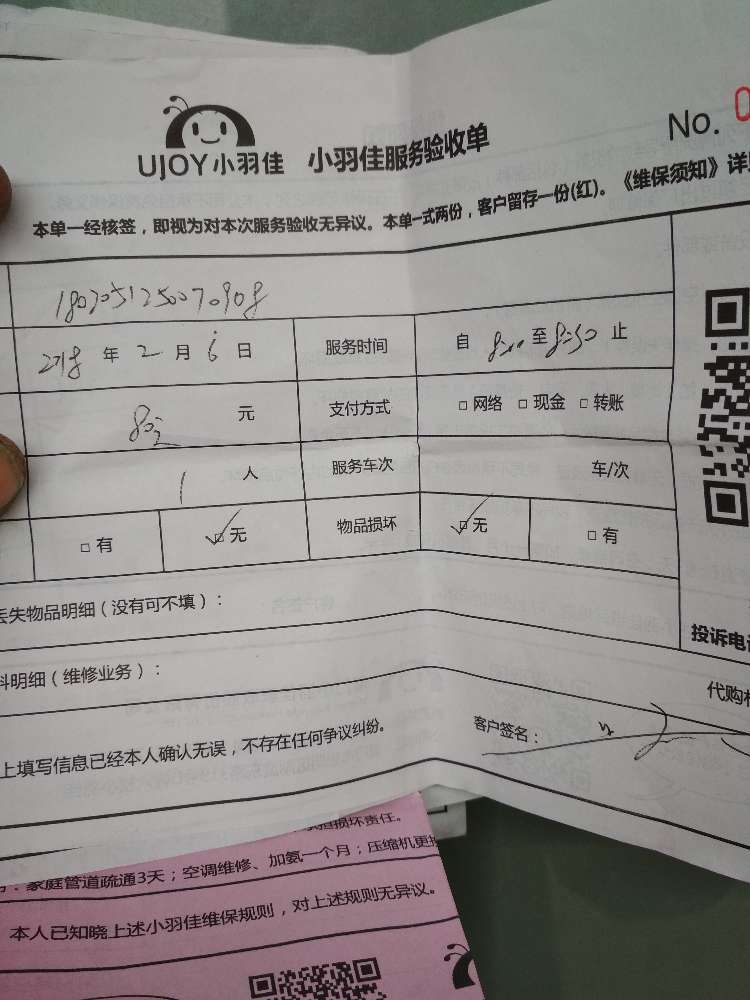 UJOY小羽佳 小羽佳服务验收单
No. 0
本单一经核签，即视为对本次服务验收无异议。本单一式两份，客户留存一份(红)。《维保须知》详
1802051250070908
2018 年 2 月 6 日 服务时间 自 至 8:50 止
元 支付方式 □ 网络 □ 现金 □ 转账
1 人 服务车次 车/次
□ 有 □ 无 物品损坏 □ 无 □ 有
丢失物品明细（没有可不填）：
料明细（维修业务）：
投诉电
代购
上填写信息已经本人确认无误，不存在任何争议纠纷。
客户签名：
损坏责任。
：家庭管道疏通3天；空调维修、加氨一个月；压缩机更
本人已知晓上述小羽佳维保规则，对上述规则无异议。